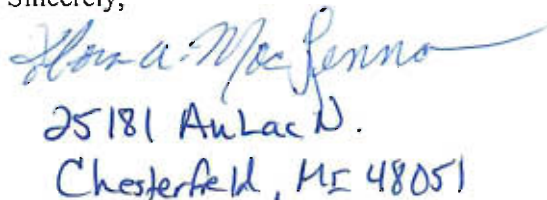 Sincerely,
a. MacLennan
25181 AuLac N.
Chesterfield, MI 48051